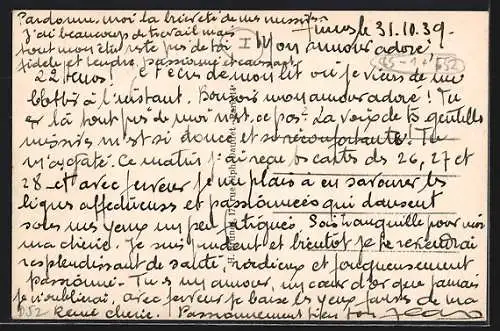 Pardonne moi la brièveté de mes missives
J'ai beaucoup de travail mais
tout mon être reste près de toi
fidèle et tendre, passionné et caressant
Tunis le 31.10.39.
Mon amour adoré
22 heures! C'est de mon lit où je viens de me
blottir à l'instant. Bonsoir mon amour adoré! Tu
es là tout près de moi n'est ce pas? La voix de tes gentilles
missives m'est si douce et si réconfortante! Tu
m'as gâté. Ce matin j'ai reçu tes cartes des 26, 27 et
28 et avec ferveur je me plais à en savourer les
lignes affectueuses et passionnées qui dansent
sous mes yeux un peu fatigués. Sois tranquille pour moi
ma chérie. Je suis prudent et bientôt je te reviendrai
resplendissant de santé, et fougueusement
passionné. Tu es mon amour, un cœur d'or que jamais
je n'oublierai, avec ferveur je baise les yeux fauves de ma
Reine chérie. Passionnément tien ton Jean
352